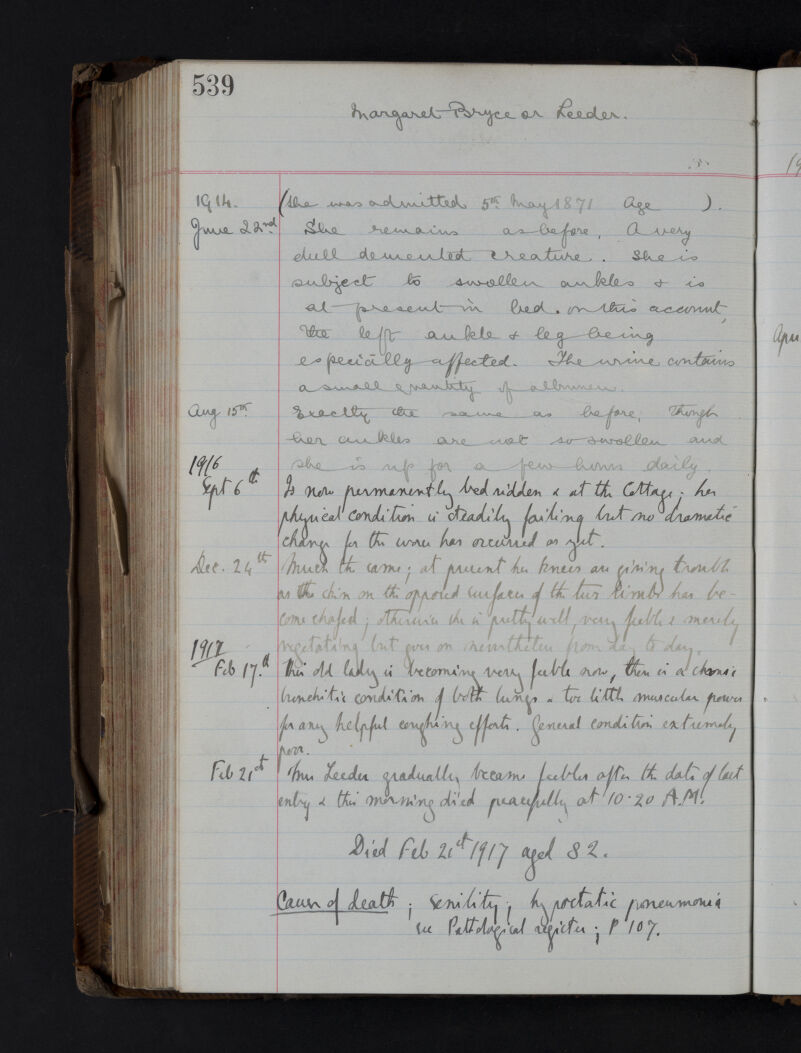 539
Margaret Bryce or Leeder.
1914. (She was admitted 5th May 1871 Age ).
June 22nd She remains as before. A very
dull demented creature. She is
subject to swollen ankles & is
at present in bed on this account,
the left ankle & leg being
especially affected. The urine contains
a small quantity of albumen.
Aug 15th Exactly the same as before, though
her ankles are not so swollen and
1916 she is up for a few hours daily.
Sept 6th Is now permanently bed ridden & at the Cottage; her
physical condition is steadily failing but no dramatic
change for the worse has occurred as yet.
Dec. 24th Much the same; at present her knees are giving trouble
as the skin on the opposed surfaces of the two limbs has be-
come chafed; otherwise she is pretty well, very feeble & merely
1917 vegetating but goes on nevertheless from day to day.
Feb 17th This old lady is becoming very feeble now, there is a chronic
bronchitic condition of both lungs & too little muscular power
for any helpful coughing efforts. General condition extremely
poor.
Feb 21st Mrs Leeder gradually became feebler after the date of last
entry & this morning died peacefully at 10.20 A.M.
Died Feb 21st 1917 aged 82.
Cause of death; Senility; hypostatic pneumonia
see Pathological register; P 107.
19